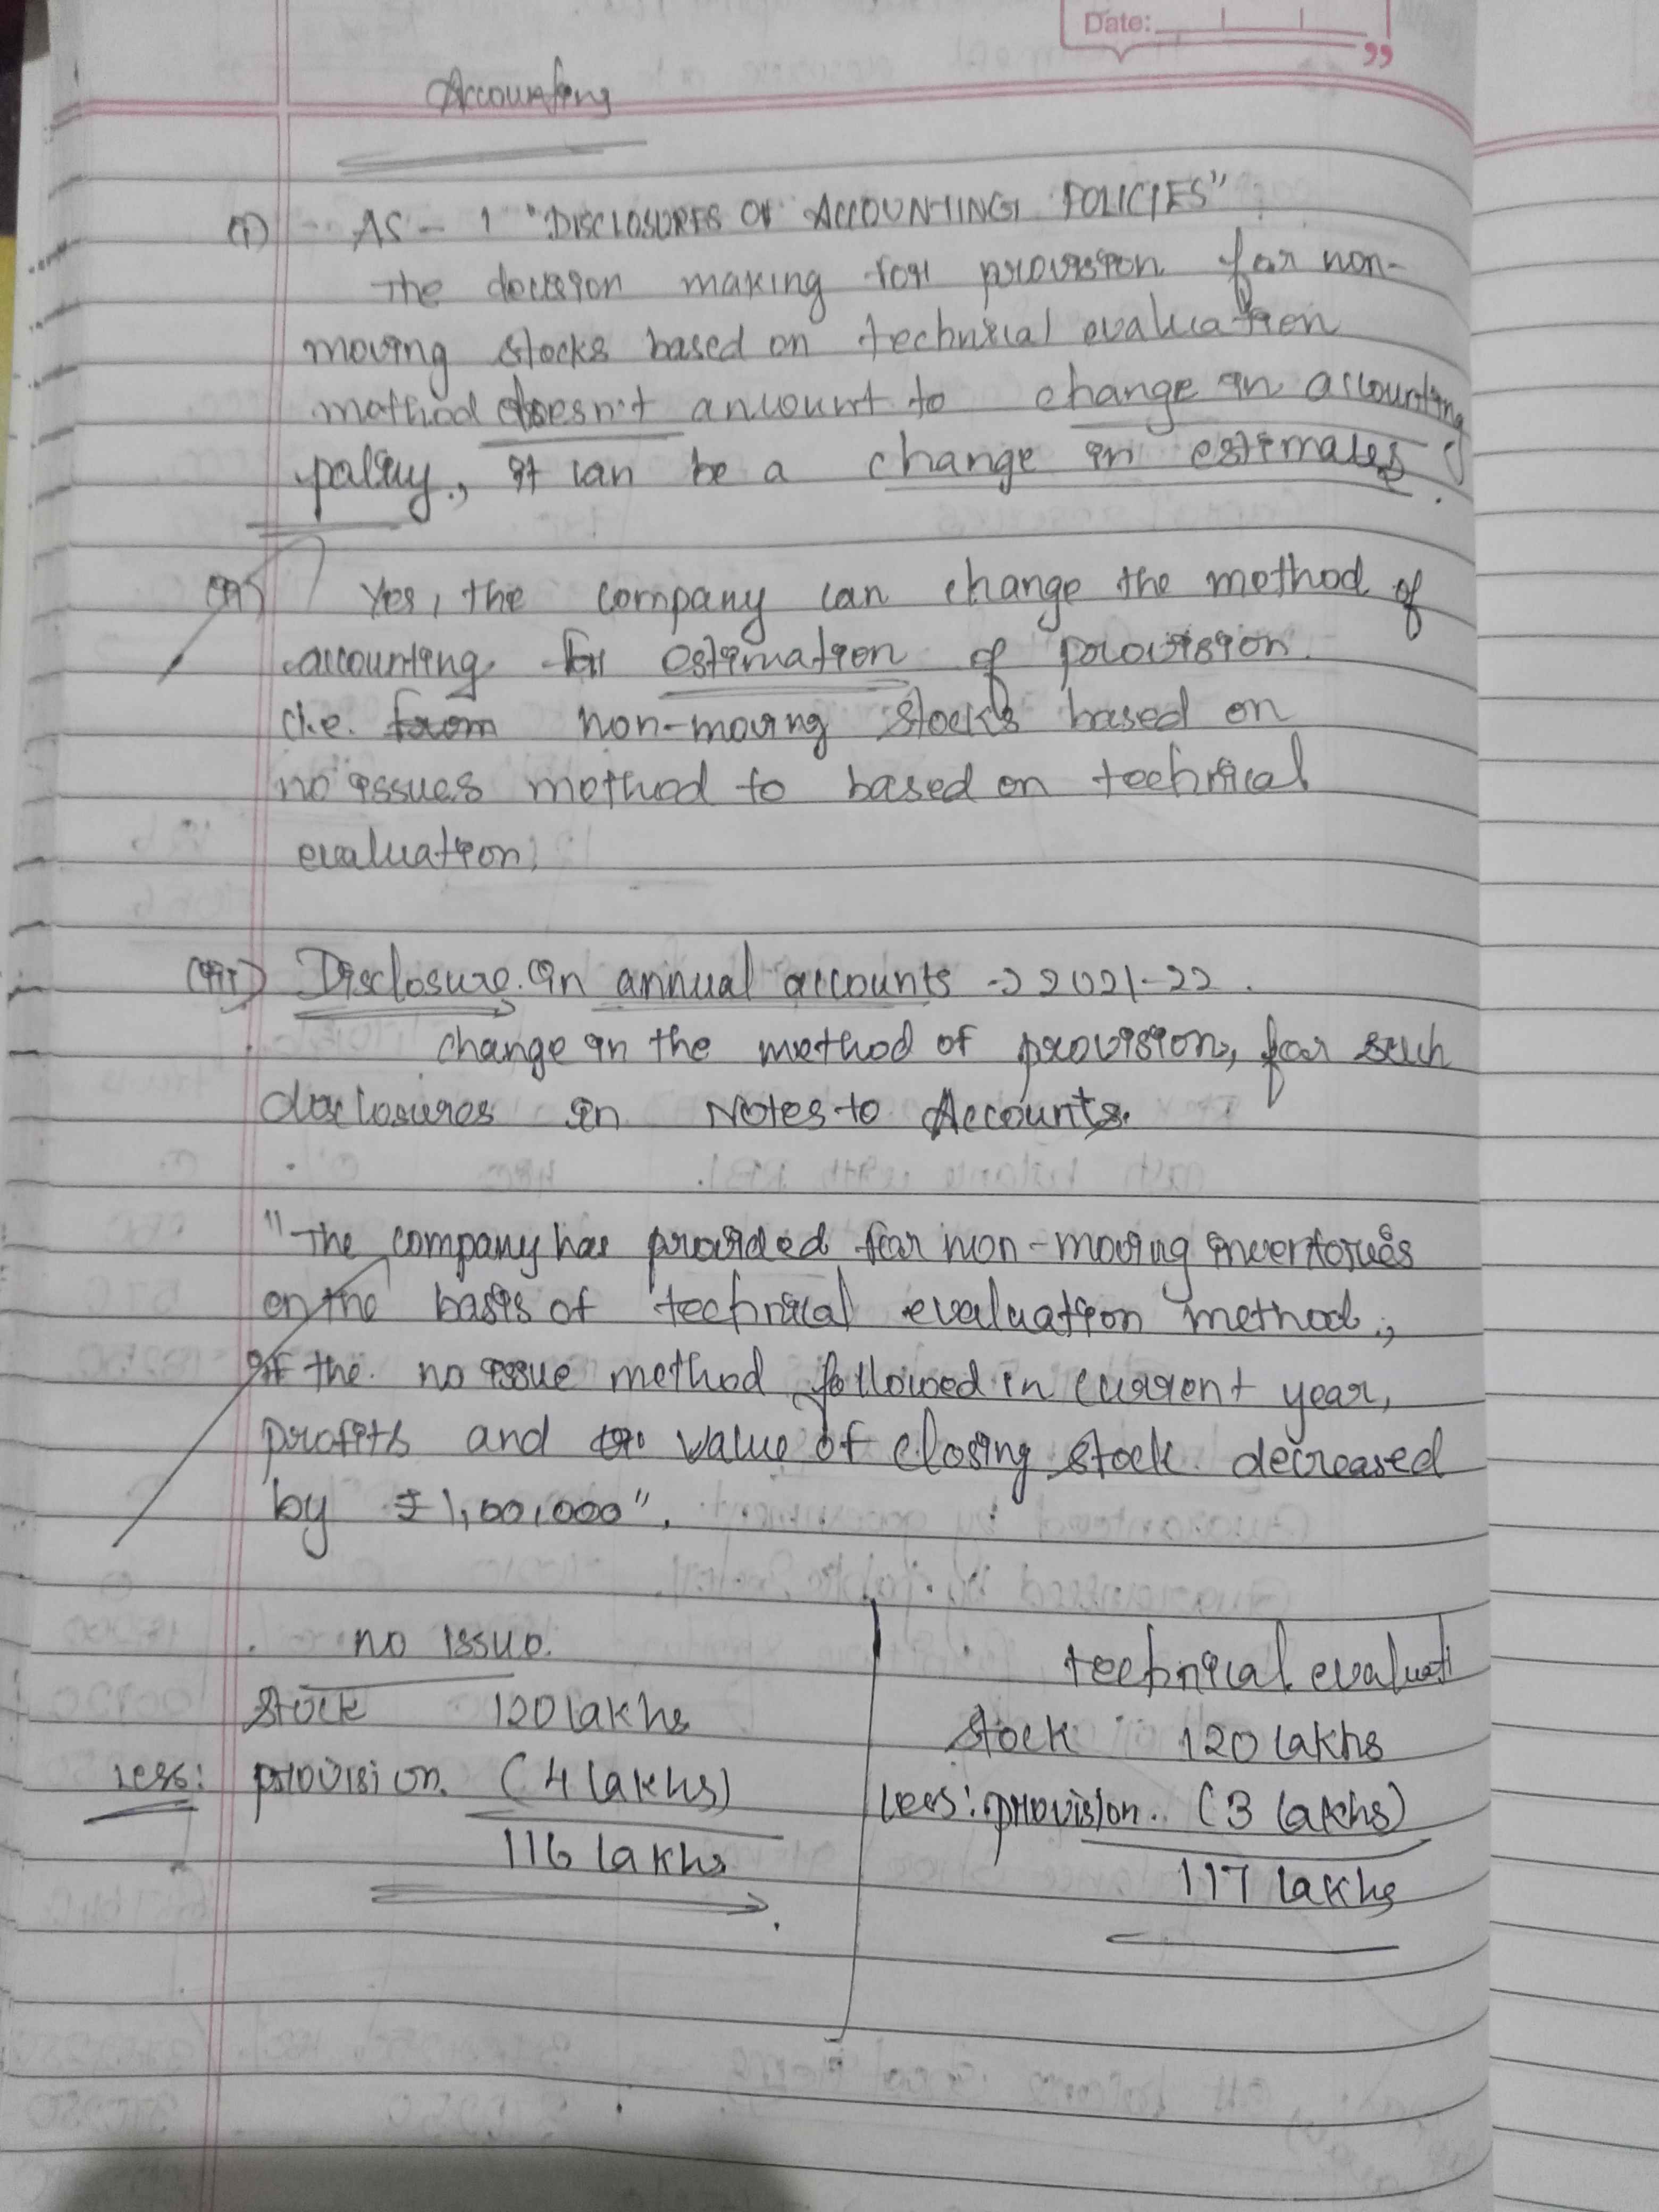 Date:
Accounting
(i) AS - 1 "DISCLOSURES OF ACCOUNTING POLICIES"
The decision making for provision for non-
moving stocks based on technical evaluation
method doesn't amount to change in accounting
policy, it can be a change in estimates.
(ii) Yes, the company can change the method of
accounting for estimation of provision.
i.e. from non-moving stocks based on
no issues method to based on technical
evaluation.
(iii) Disclosure in annual accounts → 2021-22.
change in the method of provision, for such
disclosures in Notes to Accounts.
"The company has provided for non-moving inventories
on the basis of technical evaluation method,
if the no issue method followed in current year,
profits and value of closing stock decreased
by ₹1,00,000".
no issue.
stock 120 lakhs
Less: provision. (4 lakhs)
116 lakhs
technical evaluati
Stock 120 lakhs
Less: provision. (3 lakhs)
117 lakhs